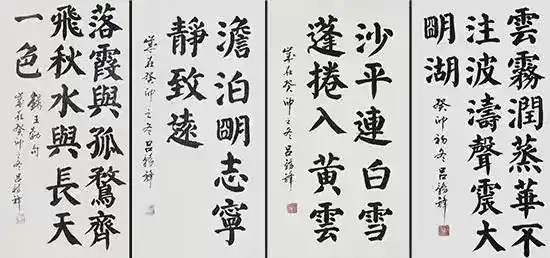 雲霧潤蒸華不
注波濤聲震大
眀湖
癸卯初冬呂
沙平連白雪
蓬捲入黄雲
歲在癸卯之冬呂
澹泊眀志寧
靜致遠
歲在癸卯之冬呂
落霞與孤鶩齊
飛秋水與長天
一色
錄王勃句
歲在癸卯之冬呂